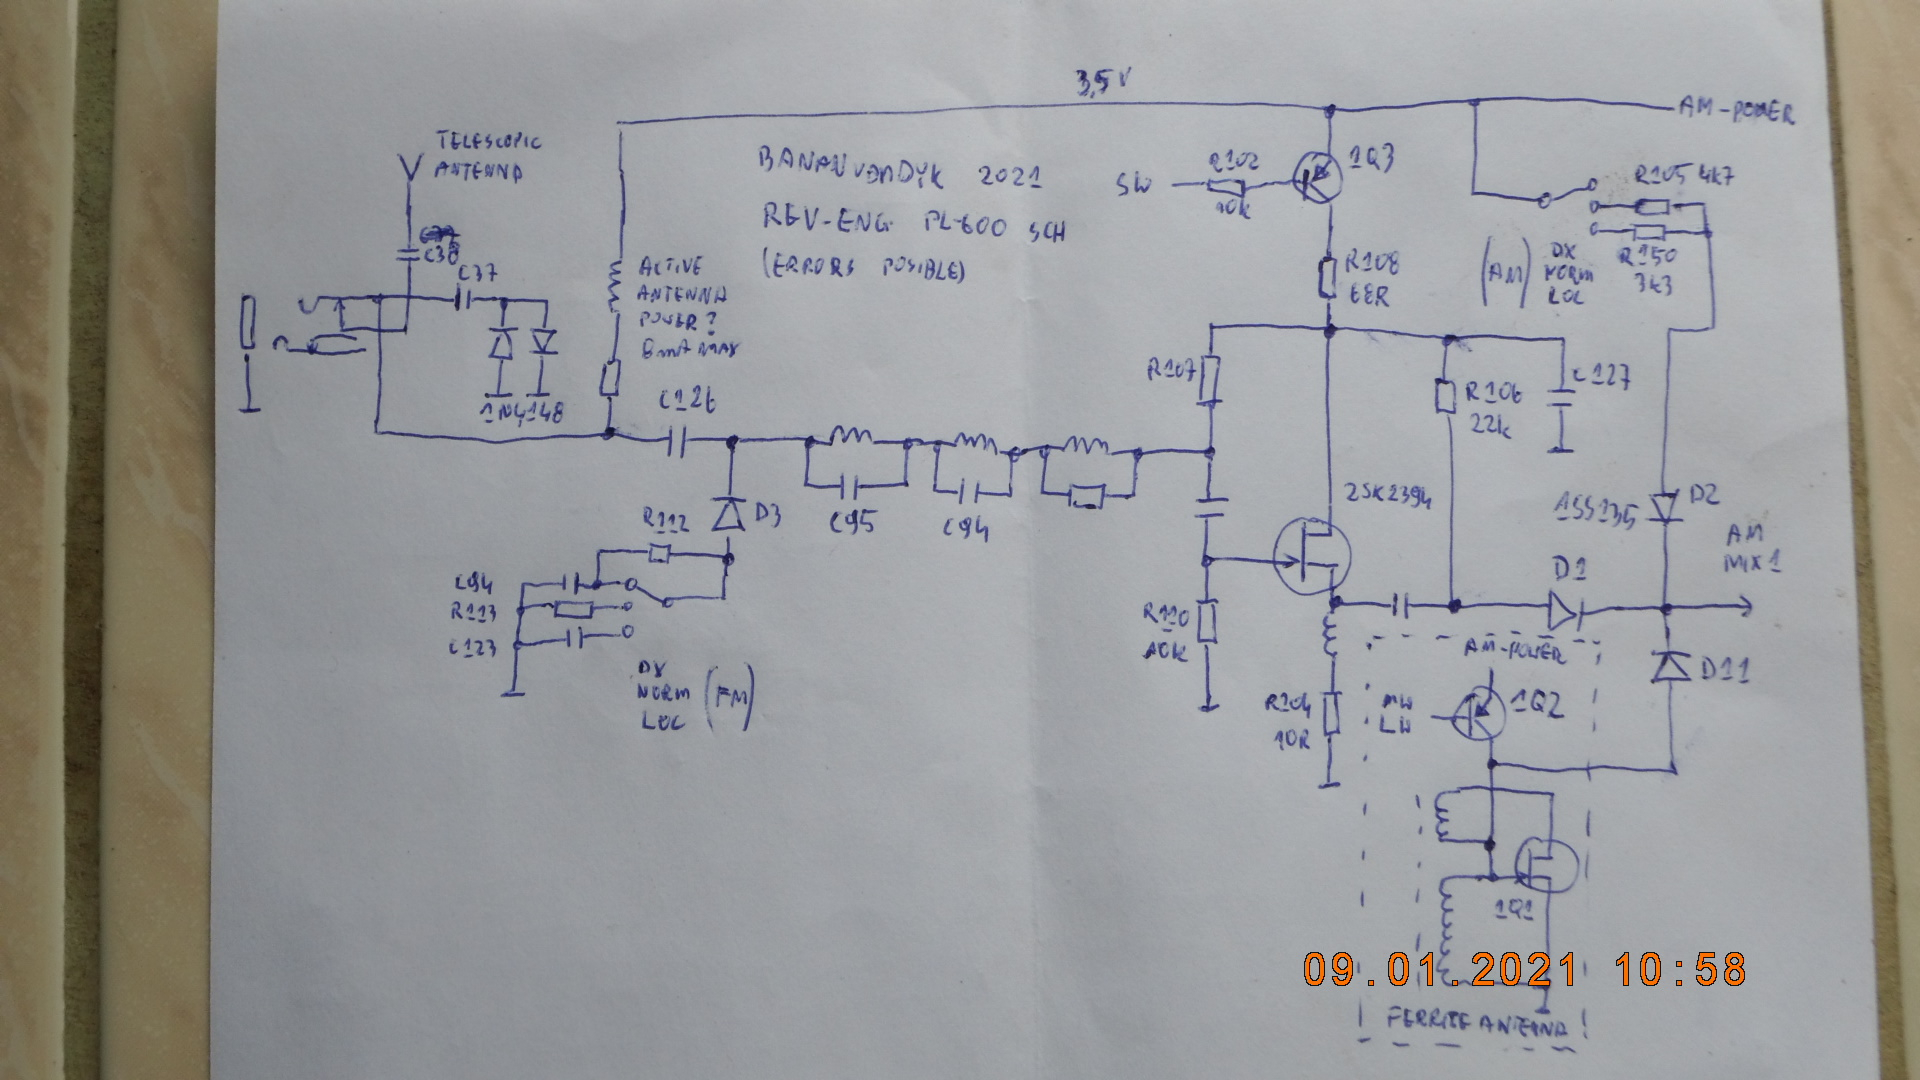 3,5V
AM-POWER
TELESCOPIC
ANTENNA
BANANVONDYK 2021
REV-ENG. PL-600 SCH
(ERRORS POSIBLE)
SW
R102
10k
1Q3
R105 4k7
C38
C37
ACTIVE
ANTENNA
POWER?
6mA MAX
R108
68R
(AM)
DX
NORM
LOC
R150
3k3
1N4148
C126
R107
R106
22k
C127
2SK2394
1SS135
D2
AM
MIX1
R112
D3
C95
C94
D1
C94
R113
C123
R110
10K
AM-POWER
D11
DX
NORM
LOC
(FM)
R104
10R
MW
LW
1Q2
1Q1
09.01.2021 10:58
FERRITE ANTENNA